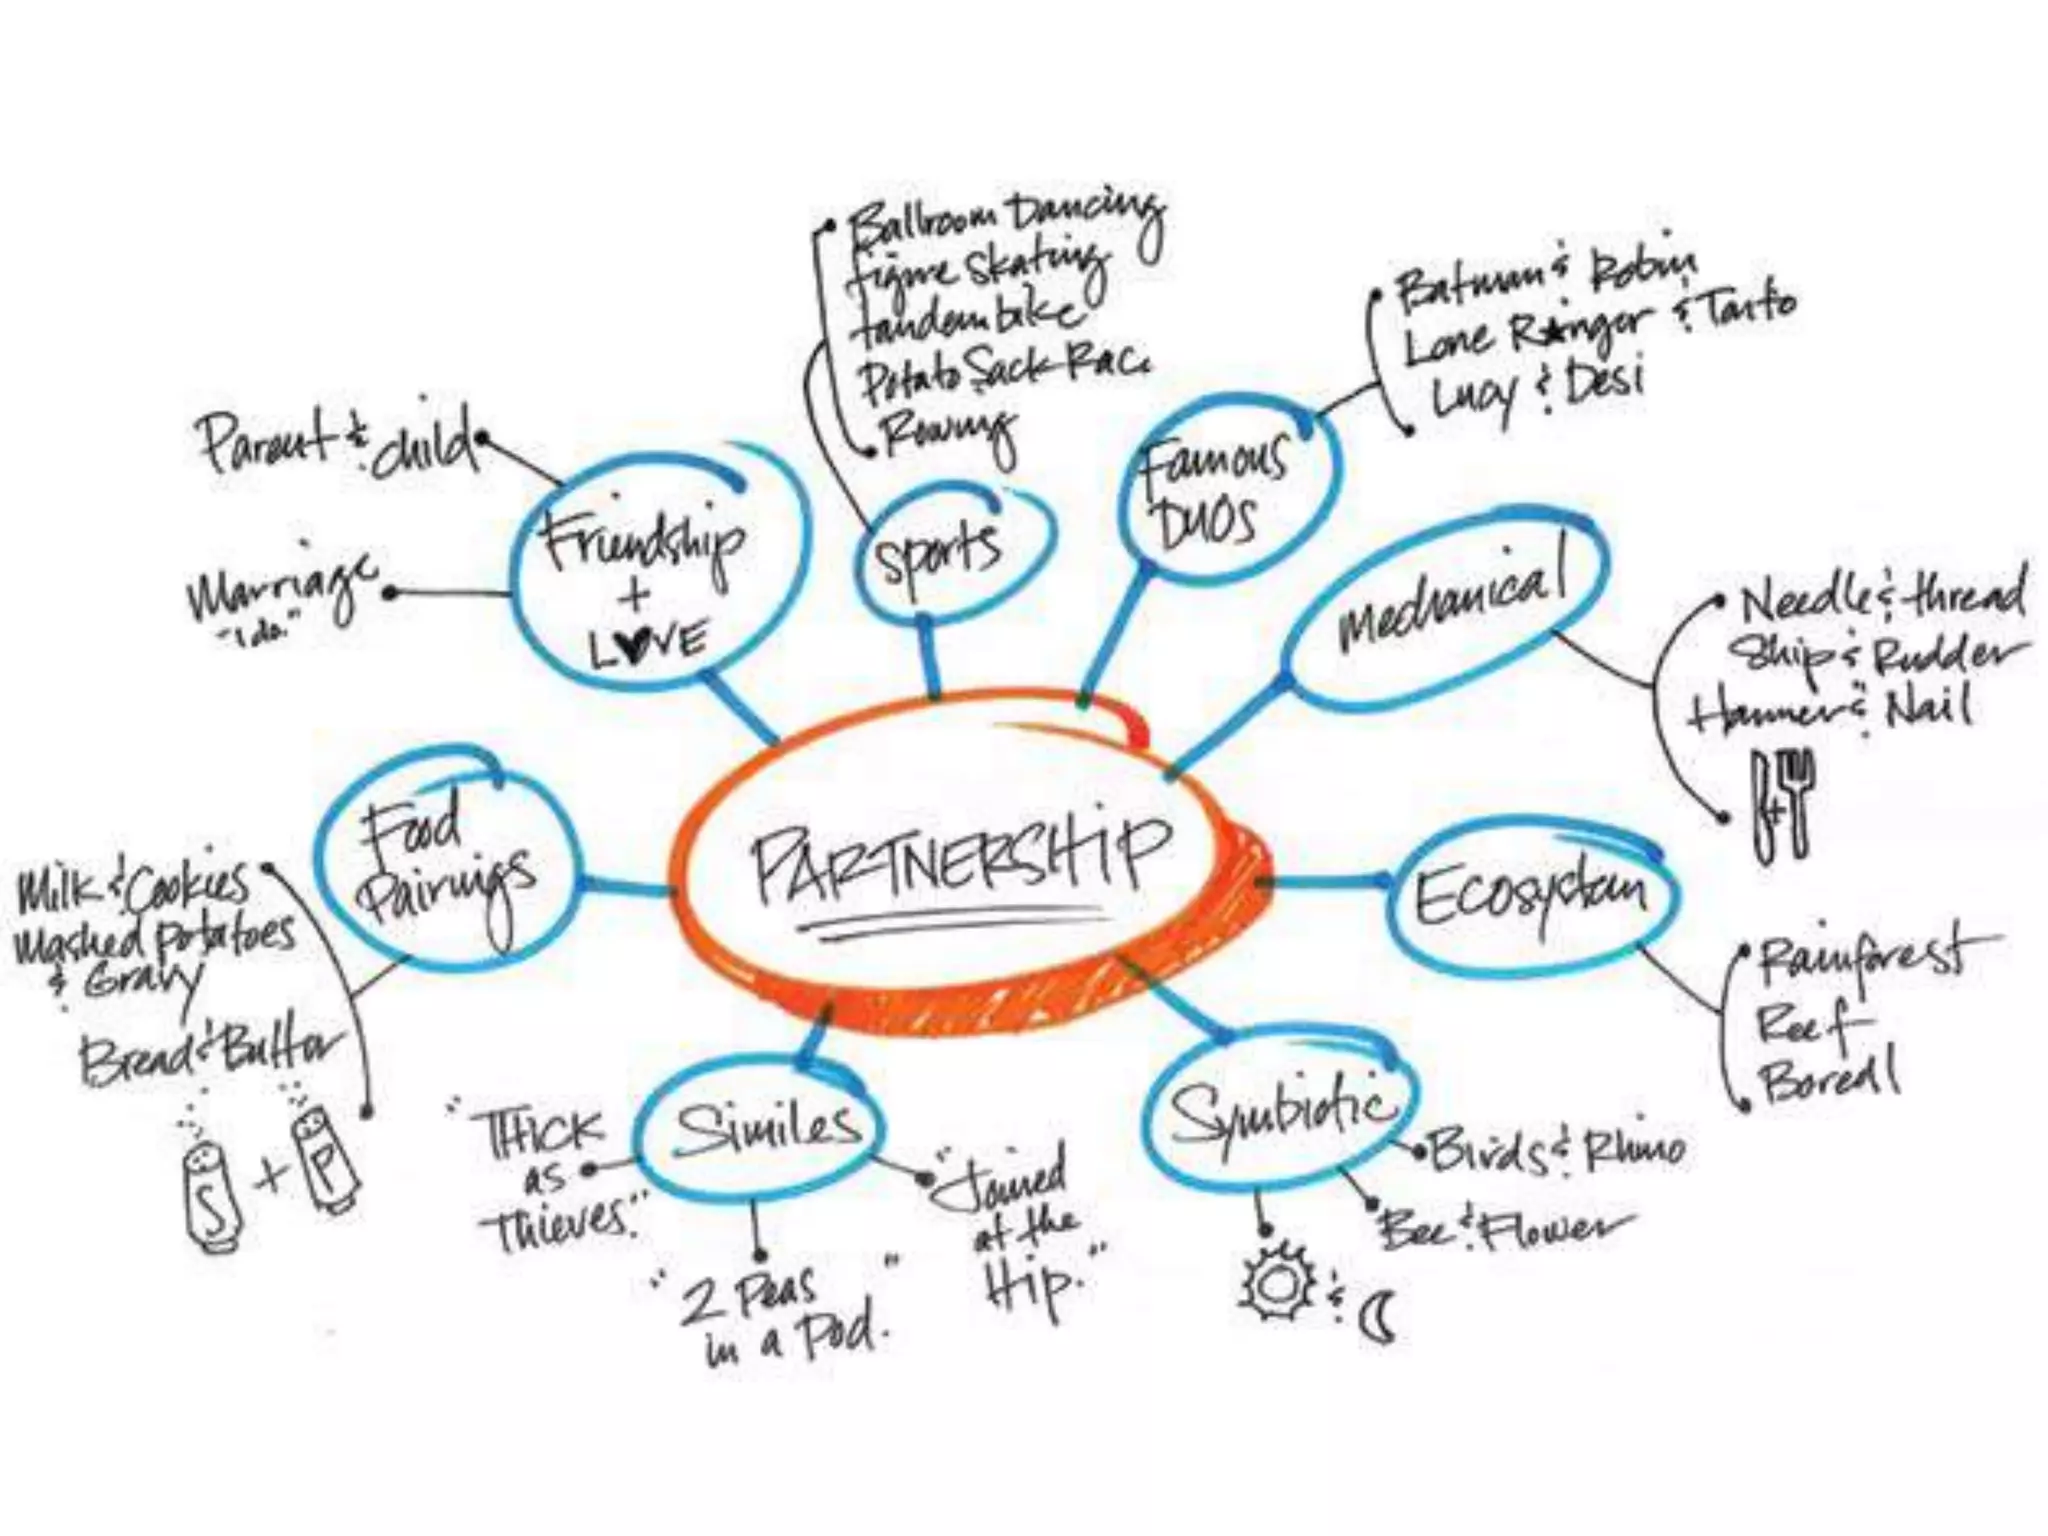 Ballroom Dancing
figure skating
tandem bike
Potato Sack Race
Rowing
Batman & Robin
Lone Ranger & Tanto
Lucy & Desi
Parent & child
Marriage
"I do."
Friendship
+
LOVE
sports
Famous
DUOS
Mechanical
Needle & thread
Ship & Rudder
Hammer & Nail
+
Food
Pairings
Milk & Cookies
Mashed Potatoes
& Gravy
Bread & Butter
S + P
PARTNERSHIP
Ecosystem
Rainforest
Reef
Boreal
Similes
"THICK
as
Thieves."
"2 Peas
in a Pod."
"Joined
at the
Hip."
Symbiotic
Birds & Rhino
Bee & Flower
&